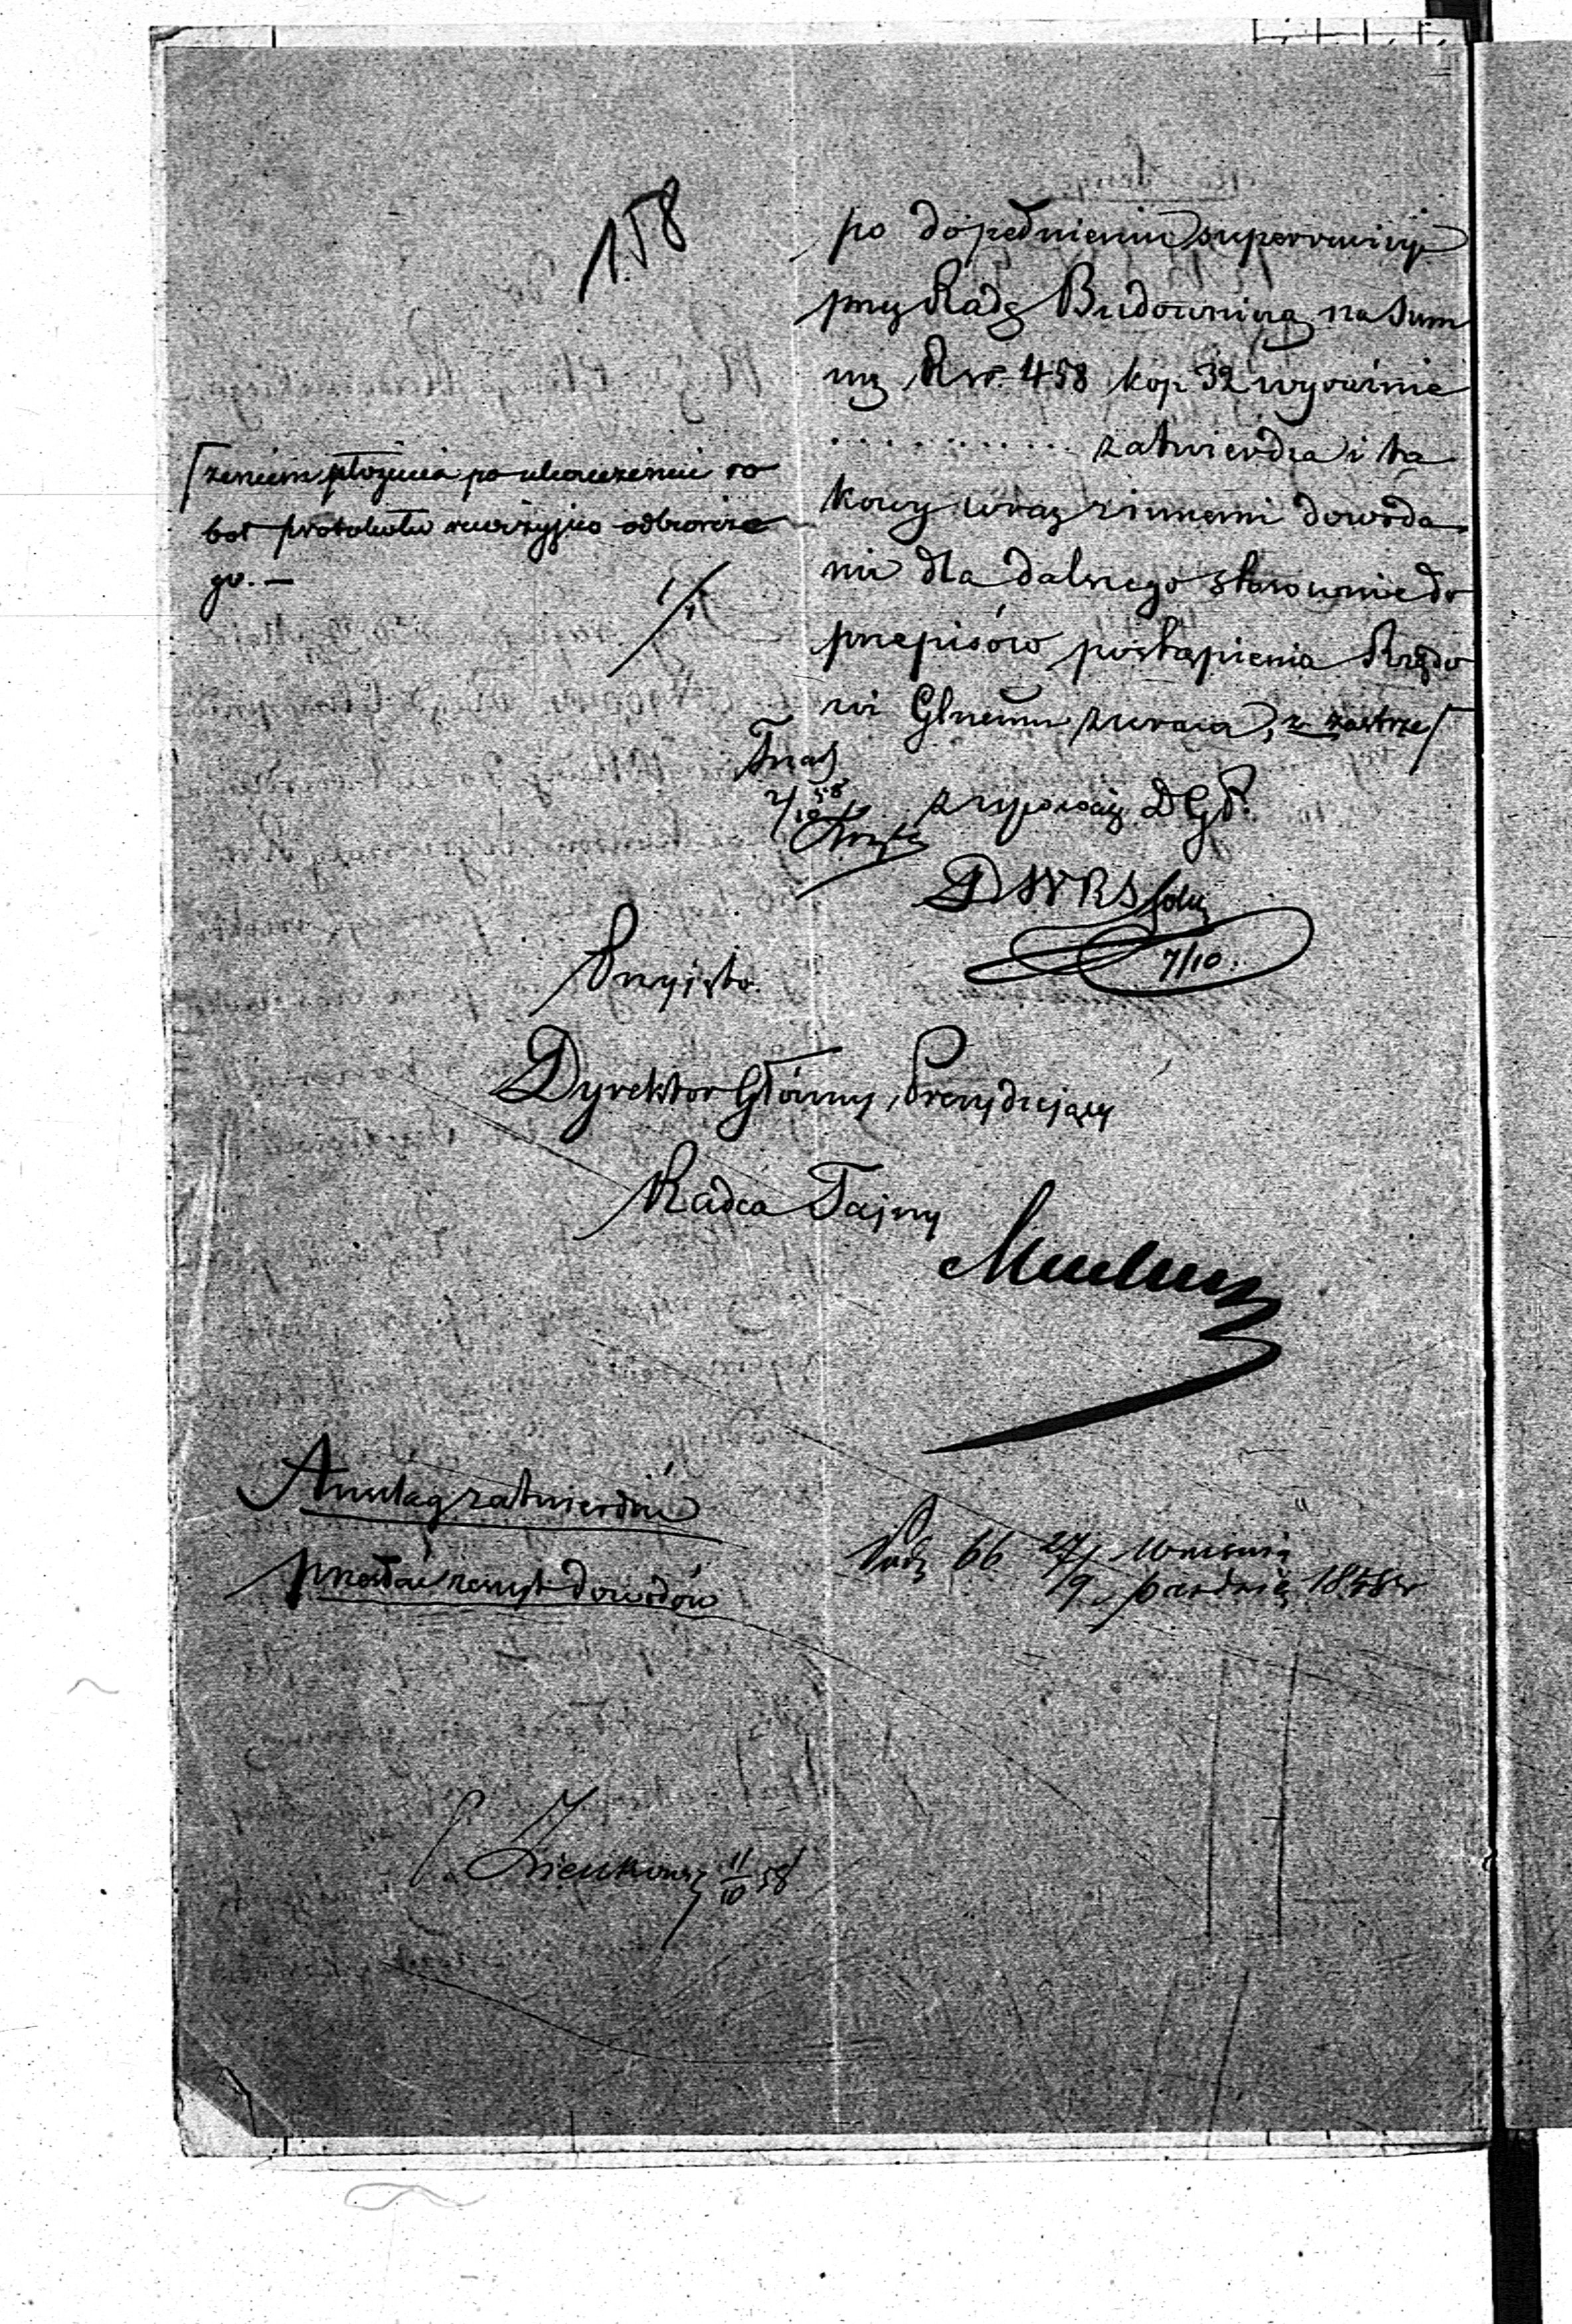 158
po dopełnieniu superrewizyi
przy Radzę Budowniczą na Sum
mę Rsr. 458 kop 32 wyraźnie
. . . . . . . . . . zatwierdza i ta
kowy wraz z innemi dowoda
mi dla dalszego stosownie do
przepisów postąpienia Rządo
wi Glnemu zwraca, z zastrze
żeniem złożenia po ukończeniu ro
bót protokołu rewizyjno odbiorcze
go. —
z upoważ DGP.
DWRS
7/10.
Przyjęto.
Dyrektor Główny, Prezydujący
Radca Tajny
Anszlag zatwierdzić
przesłać resztę dowodów
66 27/9 Września
Paździer 1858 r
11/10 58